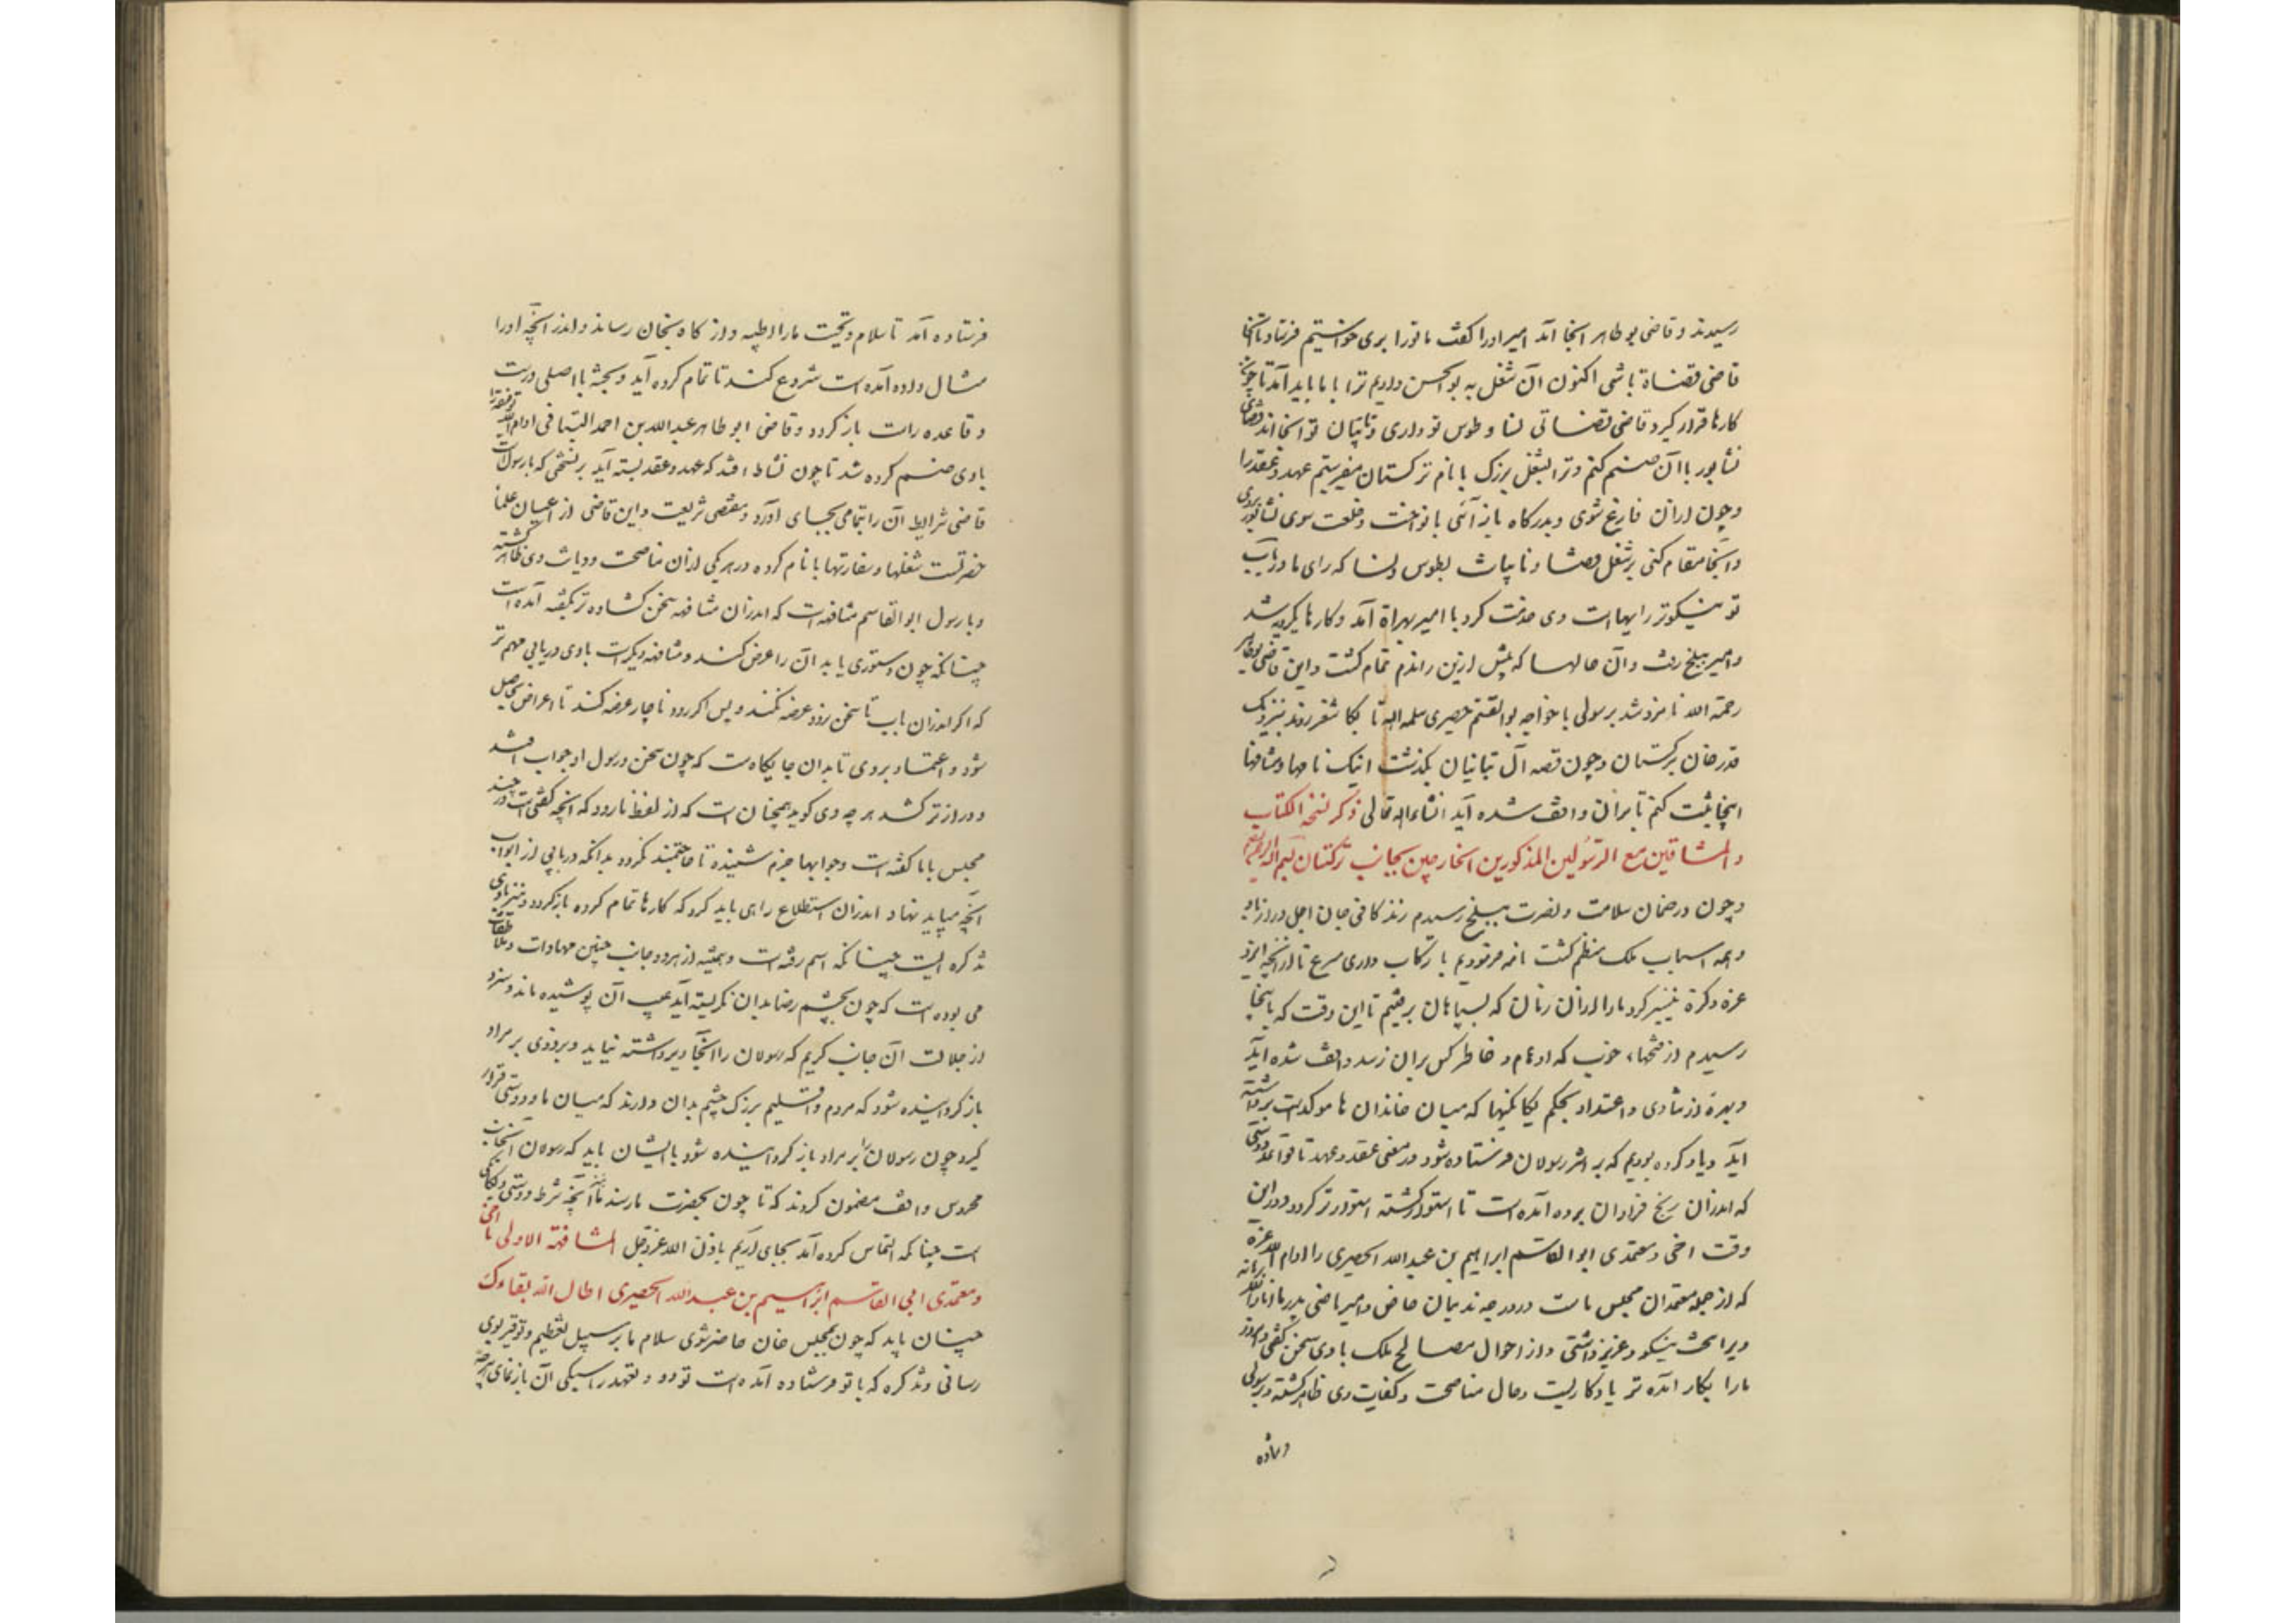 رسیدند و قاضی بو طاهر اینجا آمد امیر او را گفت ما تو را بری خواستیم فرستاد تا آنجا
قاضی قضاة باشی اکنون آن شغل به بو الحسن دادیم ترا با ما باید آمد تا چون
کارها قرار گیرد قاضی قضاتی نسا و طوس تو داری و نایبان تو آنجا اند قضای
نشابور با آن ضم کنم و ترا بشغل بزرگ با نام ترکستان میفرستیم عهد و عقد را
و چون از آن فارغ شوی و بدرگاه باز آئی با نواخت و خلعت سوی نشابور بروی
و آنجا مقام کنی بر شغل قضا و نایبات بطوس و نسا که رای ما در باب
تو نیکوتر رایهاست وی خدمت کرد با امیر بهراة آمد و کارها یکرویه شد
و امیر ببلخ رفت و آن حالها که پیش ازین راندم تمام گشت و این قاضی بوطاهر
رحمة الله نامزد شد برسولی با خواجه بوالقسم حصیری سلمه الله تا بکاشغر روند بنزدیک
قدرخان بترکستان و چون قصه آل تبانیان بگذشت اینک نامها و مشافهها
اینجا ثبت کنم تا بران واقف شده آید انشاءالله تعالی ذکر نسخة الکتاب
و المشافهتین مع الرسولین المذکورین الخارجین بجانب ترکستان بسم الله الرحمن الرحیم
و چون در ضمان سلامت و نصرت ببلخ رسیدیم زندگانی خان اجل دراز باد
و همه اسباب ملک منظم گشت نامه فرمودیم با رکاب داری مسرع تا از آنچه ایزد
عزه ذکره تیسیر کرد ما را از آن زمان که بسپاهان برفتیم تا این وقت که باینجا
رسیدیم از فتحهاء خوب که اوهام و خاطر کس بران نرسد واقف شده آید
و بهره از شادی و اعتداد بحکم یگانگیها که میان خاندان ها موکدست برداشته
آید و یاد کرده بودیم که بر اثر رسولان فرستاده شود در معنی عقد و عهد تا قواعد دوستی
که اندران رنج فراوان برده آمده است تا استوار گشته استوارتر گردد و درین
وقت اخی و معتمدی ابو القاسم ابراهیم بن عبد الله الحصیری را ادام الله عزه
که از جمله معتمدان مجلس ماست در درجه ندیمان خاص و امیر ماضی پدر ما انار الله برهانه
ویرا سخت نیکو و عزیز داشتی و از احوال مصالح ملک با وی سخن گفتی و امروز
ما را بکار آمده تر یادگاریست و حال مناصحت و کفایت وی ظاهر گشته و برسولی
فرستاده
فرستاده آمد تا سلام و تحیت ما را اطیبه و از کاه بخان رساند و اندر آنچه او را
مثال داده آمده است شروع کند تا تمام کرده آید و بحثه با اصلی درست
و قاعده راست باز گردد و قاضی ابو طاهر عبدالله بن احمد التبانی ادام الله توفیقه را
با وی ضم کرده شد تا چون نشاط افتد که عهد و عقد بسته آید بر نسختی که با رسولست
قاضی شرایط آن را بتمامی بجای آورد و مقتضی شریعت و این قاضی از اعیان علما
حضرتست شغلها و سفارتها با نام کرده در هر یکی از آن مناصحت و دیانت وی ظاهر گشته
و با رسول ابو القاسم مشافهه است که اندران مشافهه سخن گشاده تر بگفته آمده است
چنانکه چون دستوری یابد آن را عرض کند و مشافهه دیگرست با وی دربابی مهم تر
که اگر اندران باب تا سخن نرود عرضه نکند و پس اگر رود ناچار عرضه کند تا اعراض بحاصل
شود و اعتماد بر وی تا بدان جایگاهست که چون سخن در سول او جواب افتد
و درازتر کشد هر چه وی گوید همچنان است که از لفظ ما رود که آنچه گفتنی است در چند
مجلس با ما گفته است و جوابها جزم شنیده تا حاجتمند نگردد بدانکه در بابی از ابواب
آنچه میباید نهاد اندران استطلاع رای باید کرد که کارها تمام کرده باز گردد و نیز با وی
تذکره ایست چنانکه اسم رفته است و همیشه از هر دو جانب چنین مهادات و ملاطفات
می بوده است که چون بچشم رضا بدان نگریسته آید عیب آن پوشیده ماند و سزد
از جلالت آن جانب کریم که رسولان را آنجا دیر داشته نیاید و بزودی بر مراد
باز گردانیده شود که مردم دو اقلیم بزرگ چشم بدان دارند که میان ما دو دوستی قرار
گیرد چون رسولان را بر مراد باز گردانیده شود با ایشان باید که رسولان آنجانب
محروس واقف مضمون گردند که تا چون بحضرت ما رسند ما نیز آنچه شرط دوستی و یگانگی
است چنانکه التماس کرده آمد بجای آریم باذن الله عزوجل المشافهة الاولی یا اخی
و معتمدی ابی القاسم ابراهیم بن عبد الله الحصیری اطال الله بقاءک
چنان باید که چون بمجلس خان حاضر شوی سلام ما بر سبیل تعظیم و توقیر بوی
رسانی و تذکره که با تو فرستاده آمده است تودد و تعهد را سبکی آن باز نمای هر چه